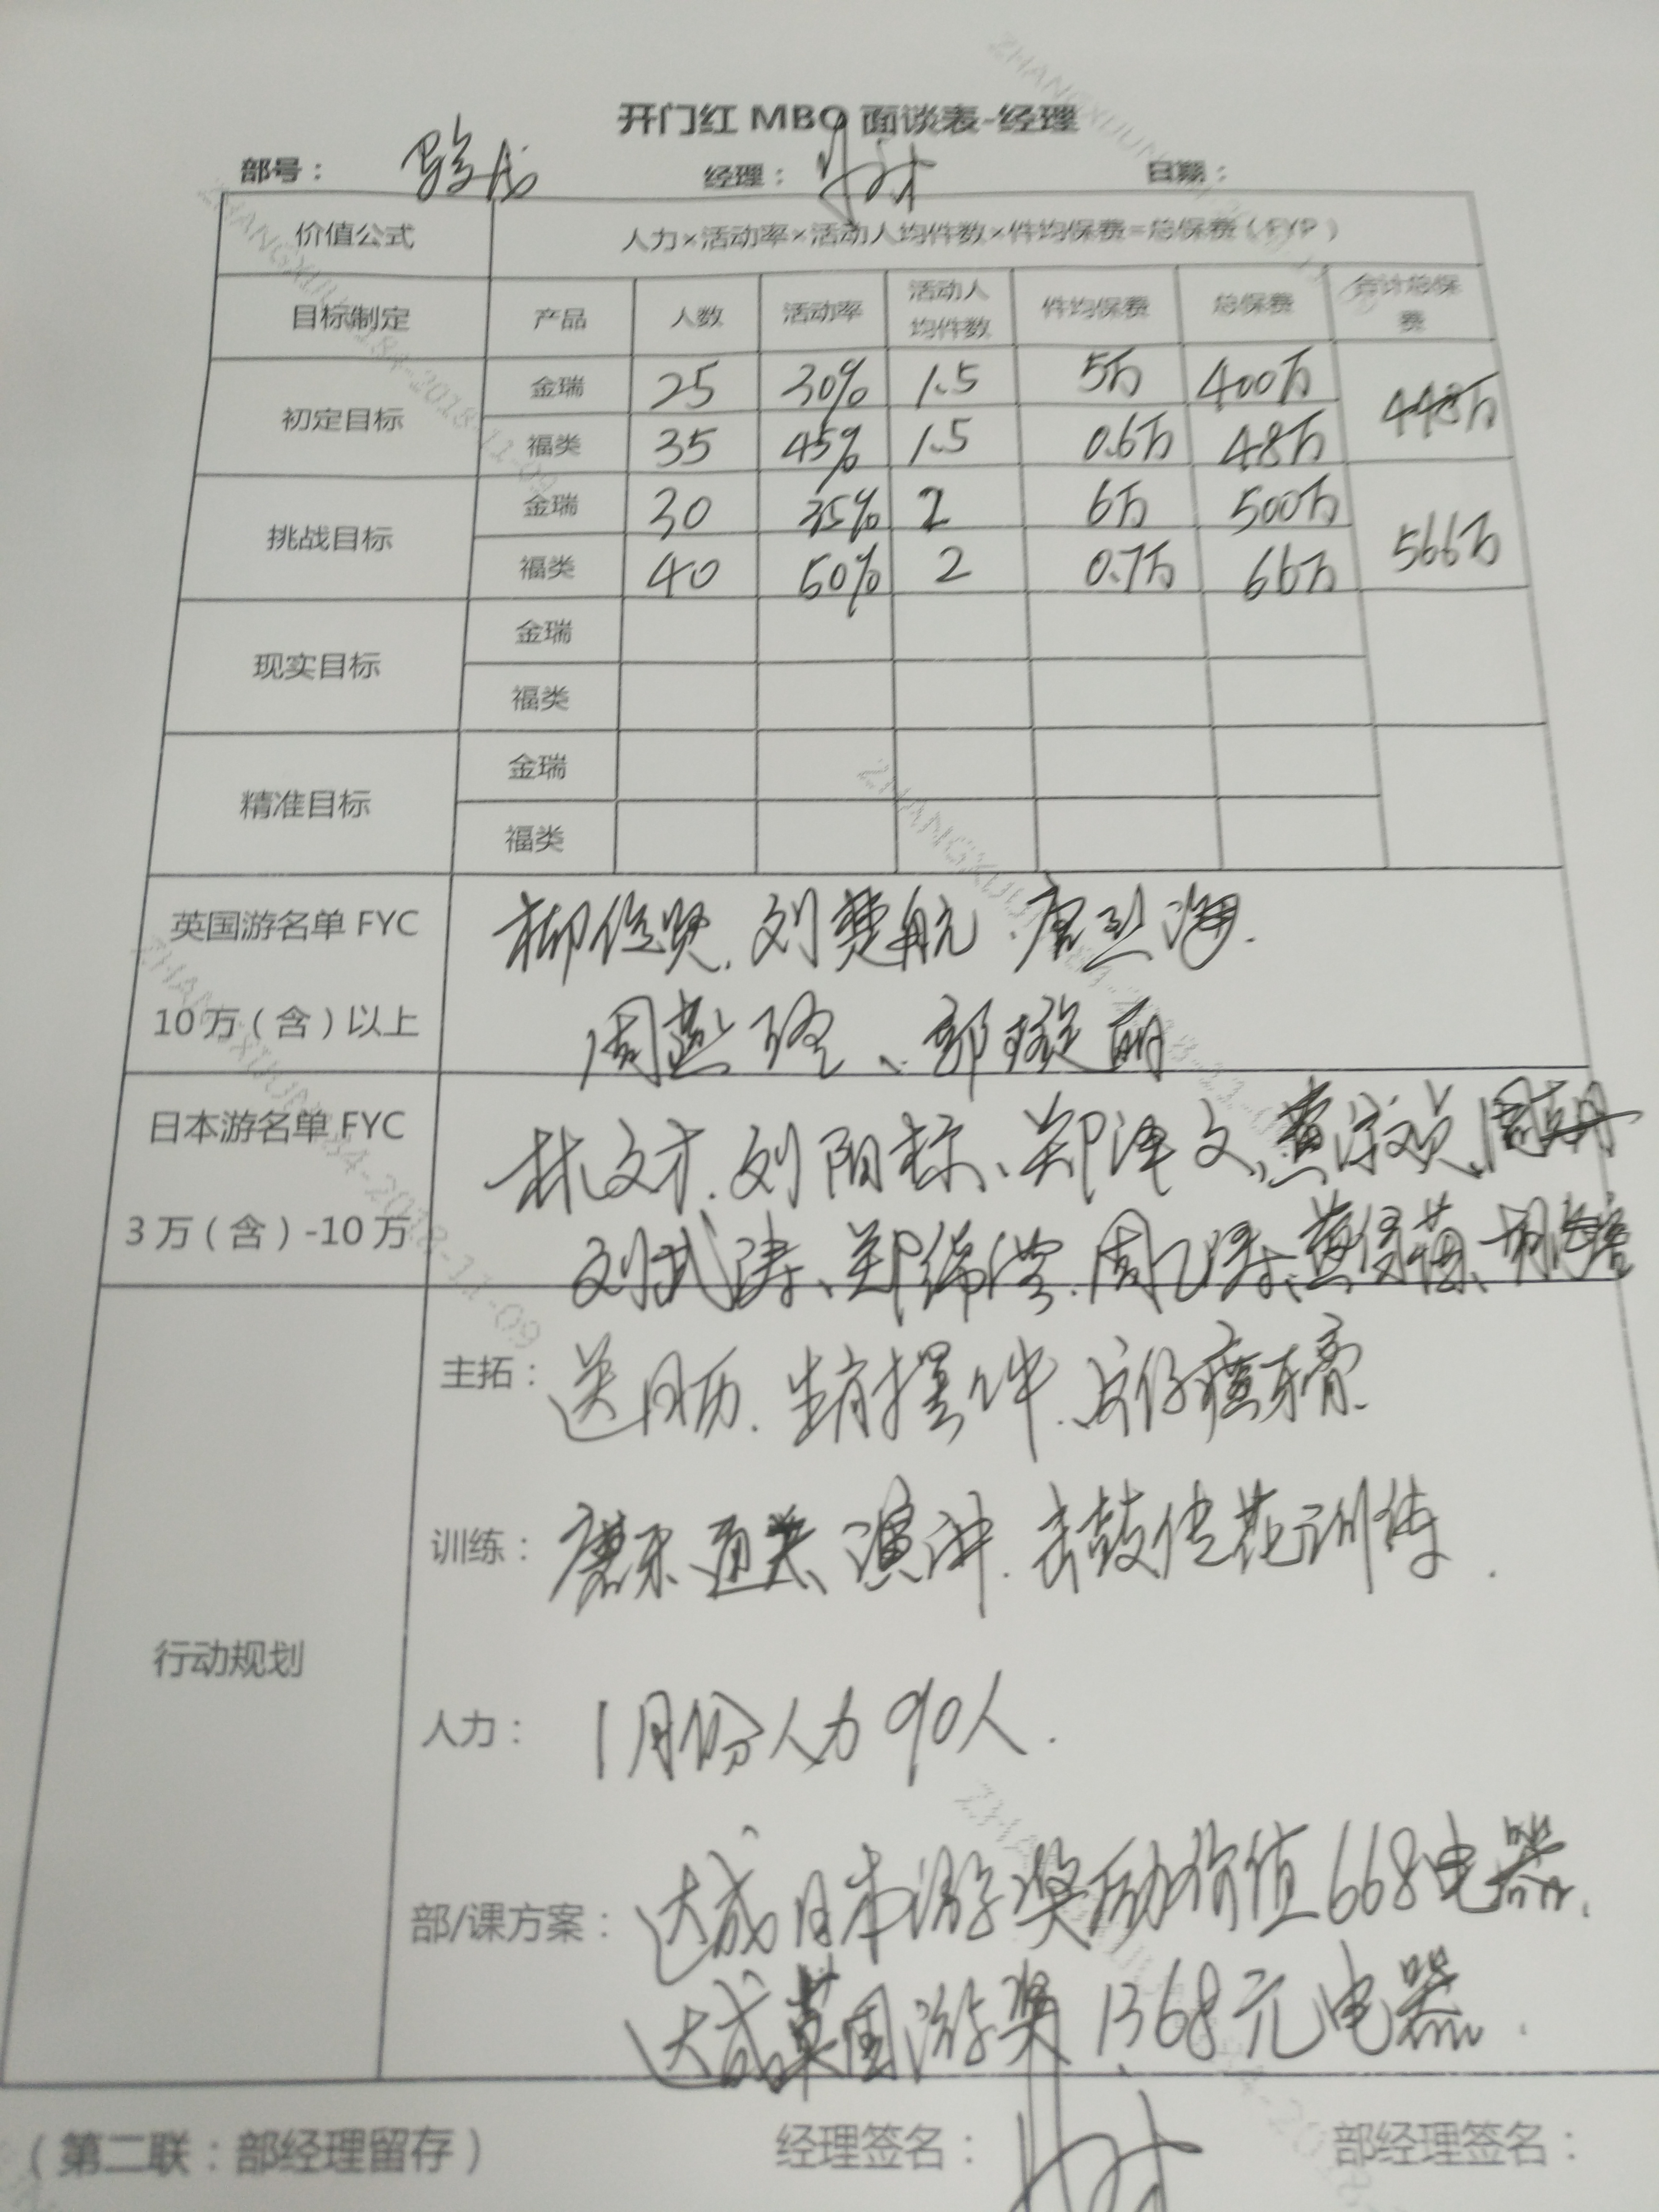 开门红 MBO 面谈表-经理
部号： 骏成 经理： 日期：
价值公式 人力×活动率×活动人均件数×件均保费=总保费（FYP）
目标制定 产品 人数 活动率 活动人均件数 件均保费 总保费 合计总保费
初定目标 金瑞 25 30% 1.5 5万 400万 448万
福类 35 45% 1.5 0.6万 48万
挑战目标 金瑞 30 35% 2 6万 500万 566万
福类 40 50% 2 0.7万 66万
现实目标 金瑞
福类
精准目标 金瑞
福类
英国游名单 FYC
10 万（含）以上
柳俊贤、刘楚航
周燕、郭璇丽
日本游名单 FYC
3 万（含）-10 万
林文才、刘阳标、郑泽文、
刘武涛、郑
行动规划
主拓： 送日历、生肖摆件、片仔癀牙膏
训练： 通关、演讲、击鼓传花训练.
人力： 1月份人力90人.
部/课方案： 达成日本游奖励价值668电器.
达成英国游奖1368元电器.
（第二联：部经理留存） 经理签名： 部经理签名：
ZHANGXIUJUN184-2018-11-09